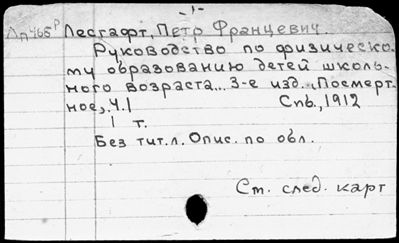 -1-
Лп465р Лесгафт, Петр Францевич.
Руководство по физическо-
му образованию детей школь-
ного возраста... 3-е изд. Посмерт-
ное, ч.1 Спб., 1912
1 т.
Без тит. л. Опис. по обл.
См. след. карт